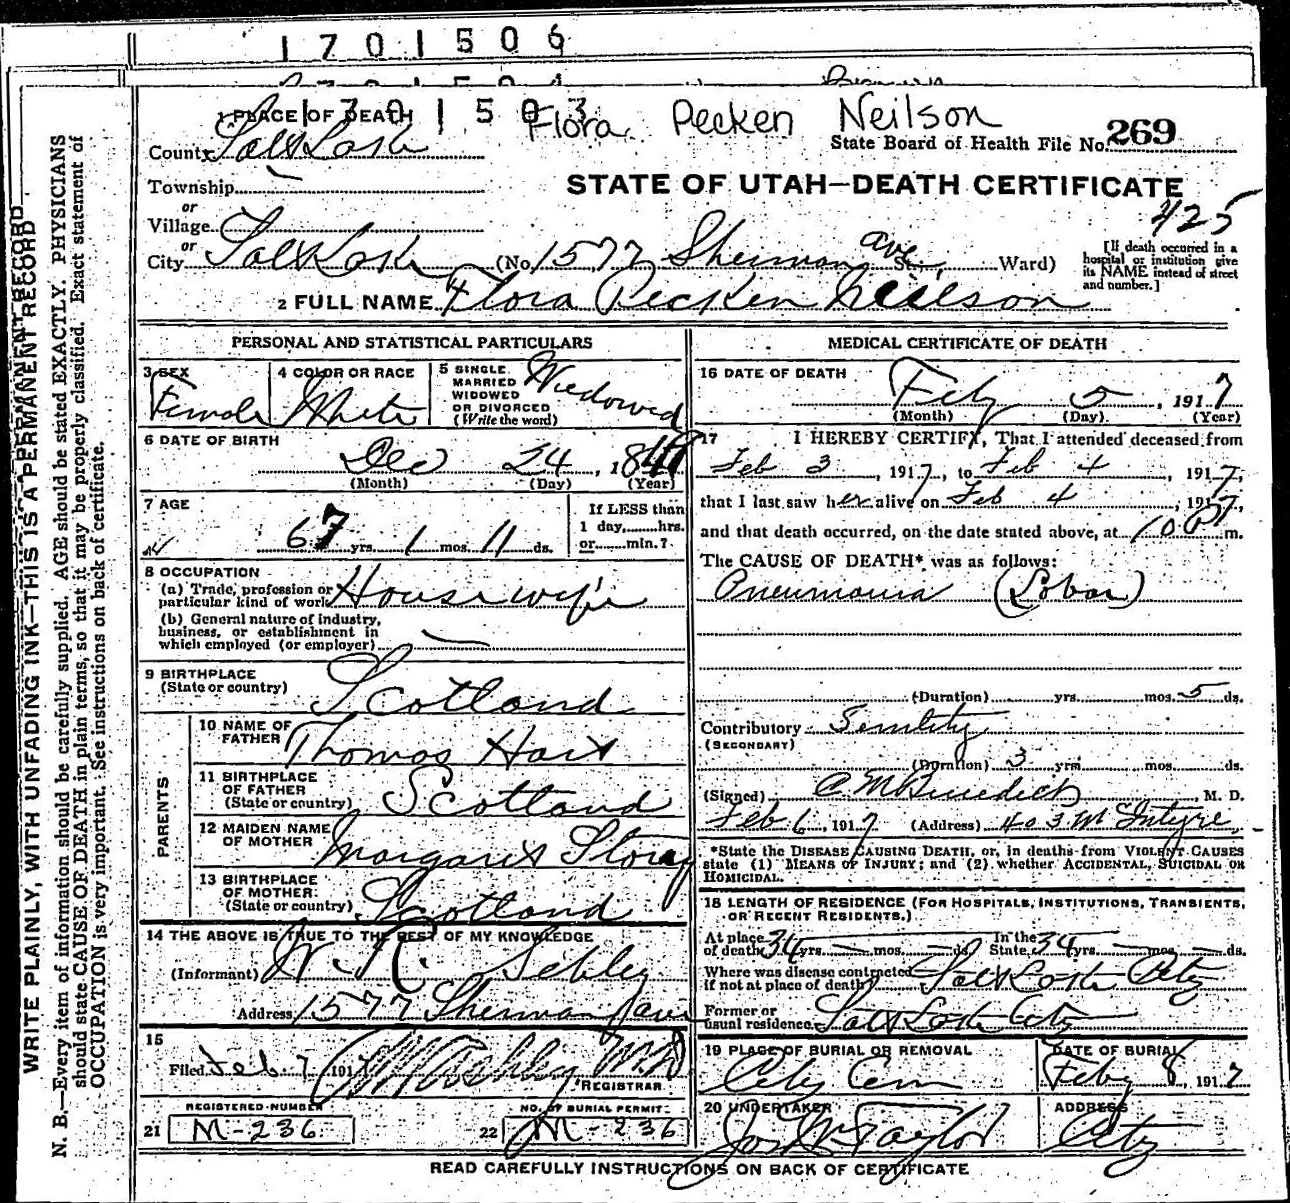 1701506
1 PLACE OF DEATH 1701503 Flora Pecken Neilson
County Salt Lake State Board of Health File No. 269
Township STATE OF UTAH—DEATH CERTIFICATE
or 425
Village
or
City Salt Lake (No. 1577 Sherman ave St.; Ward) [If death occurred in a hospital or institution give its NAME instead of street and number.]
2 FULL NAME Flora Pecken Neilson
PERSONAL AND STATISTICAL PARTICULARS
3 SEX Female
4 COLOR OR RACE White
5 SINGLE MARRIED WIDOWED OR DIVORCED (Write the word) Widowed
6 DATE OF BIRTH
Dec 24, 1849
(Month) (Day) (Year)
7 AGE If LESS than
1 day,......hrs.
67 yrs. 1 mos. 11 ds. or......min.?
8 OCCUPATION
(a) Trade, profession or
particular kind of work Housewife
(b) General nature of industry,
business, or establishment in
which employed (or employer)
9 BIRTHPLACE
(State or country) Scotland
PARENTS
10 NAME OF
FATHER Thomas Hart
11 BIRTHPLACE
OF FATHER
(State or country) Scotland
12 MAIDEN NAME
OF MOTHER Margaret Storey
13 BIRTHPLACE
OF MOTHER
(State or country) Scotland
14 THE ABOVE IS TRUE TO THE BEST OF MY KNOWLEDGE
(Informant) W. R. Sibley
Address 1577 Sherman ave
15
Filed Feb 7 191 M.D
REGISTRAR
REGISTERED NUMBER NO. OF BURIAL PERMIT
21 M-236 22 M-236
MEDICAL CERTIFICATE OF DEATH
16 DATE OF DEATH
Feby 5, 1917
(Month) (Day) (Year)
17 I HEREBY CERTIFY, That I attended deceased from
Feb 3, 1917, to Feb 4, 1917,
that I last saw her alive on Feb 4, 1917,
and that death occurred, on the date stated above, at 10 P m.
The CAUSE OF DEATH* was as follows:
Pneumonia (Lobar)
(Duration) yrs. mos. 5 ds.
Contributory Senility
(SECONDARY)
(Duration) 3 yrs. mos. ds.
(Signed) C M Benedict, M. D.
Feb 6, 1917 (Address) 403 McIntyre
*State the DISEASE CAUSING DEATH, or, in deaths from VIOLENT CAUSES
state (1) MEANS OF INJURY; and (2) whether ACCIDENTAL, SUICIDAL OR
HOMICIDAL.
18 LENGTH OF RESIDENCE (FOR HOSPITALS, INSTITUTIONS, TRANSIENTS,
OR RECENT RESIDENTS.)
At place In the
of death 34 yrs. mos. ds. State 34 yrs. mos. ds.
Where was disease contracted
if not at place of death? Salt Lake City
Former or
usual residence Salt Lake City
19 PLACE OF BURIAL OR REMOVAL DATE OF BURIAL
City Cem Feby 8, 1917
20 UNDERTAKER ADDRESS
Jos Wm Taylor City
READ CAREFULLY INSTRUCTIONS ON BACK OF CERTIFICATE
WRITE PLAINLY, WITH UNFADING INK—THIS IS A PERMANENT RECORD
N. B.—Every item of information should be carefully supplied. AGE should be stated EXACTLY. PHYSICIANS
should state CAUSE OF DEATH in plain terms, so that it may be properly classified. Exact statement of
OCCUPATION is very important. See instructions on back of certificate.